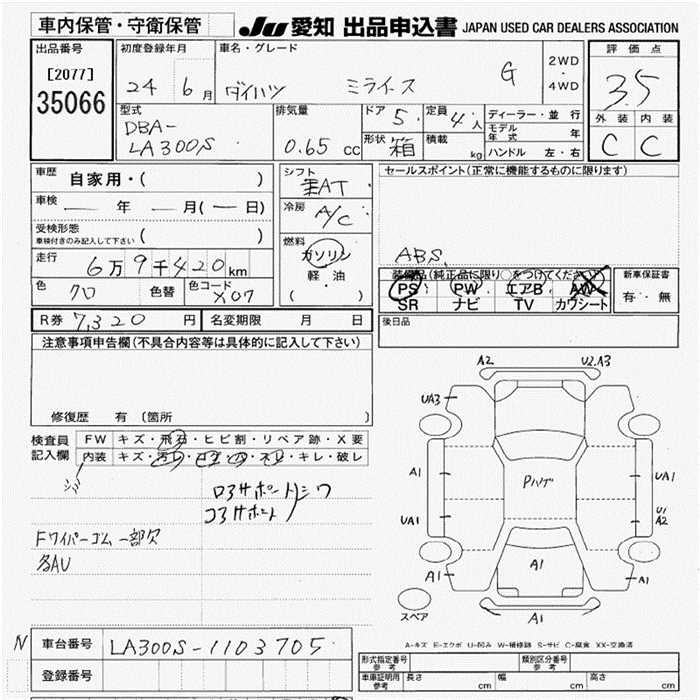 車内保管・守衛保管
JU 愛知 出品申込書 JAPAN USED CAR DEALERS ASSOCIATION
出品番号
[2077]
35066
初度登録年月
24 年 6 月
車名・グレード
ダイハツ ミライース G
2WD
・
4WD
評価点
3.5
外装 内装
C C
型式
DBA-
LA300S
排気量
0.65 cc
ドア 5
定員 4人
形状 箱
積載 kg
ディーラー・並行
モデル年式 年
ハンドル 左・右
車歴 自家用・( )
車検 年 月( 日)
受検形態
車検付きのみ記入して下さい ( )
走行
6万9千420km
色 クロ 色替
色コード X07
シフト
AT
冷房
A/C
燃料
ガソリン
軽・油
( )
セールスポイント(正常に機能するものに限ります)
ABS
装備品(純正品に限り○をつけてください)
PS PW エアB AW
SR ナビ TV カワシート
新車保証書
有・無
R券 7,320 円
名変期限 月 日
後日品
注意事項申告欄(不具合内容等は具体的に記入して下さい)
修復歴 有 〔箇所
検査員
記入欄
FW キズ・飛石・ヒビ割・リペア跡・X要
内装 キズ・汚レ・コゲ・穴・ネレ・キレ・破レ
ロアサポートシワ
コアサポート
Fワイパーゴム一部欠
多AU
A2 U2.A3
UA3
A1 Pハゲ UA1
UA1 U1
A2
A1 A1 A1
スペア A1
A-キズ E-エクボ U-凹み W-補修跡 S-サビ C-腐食 XX-交換済
N 車台番号 LA300S-1103705
登録番号
型式指定番号
参考
類別区分番号
参考
車庫証明用
参考
長さ cm 幅 cm 高さ cm